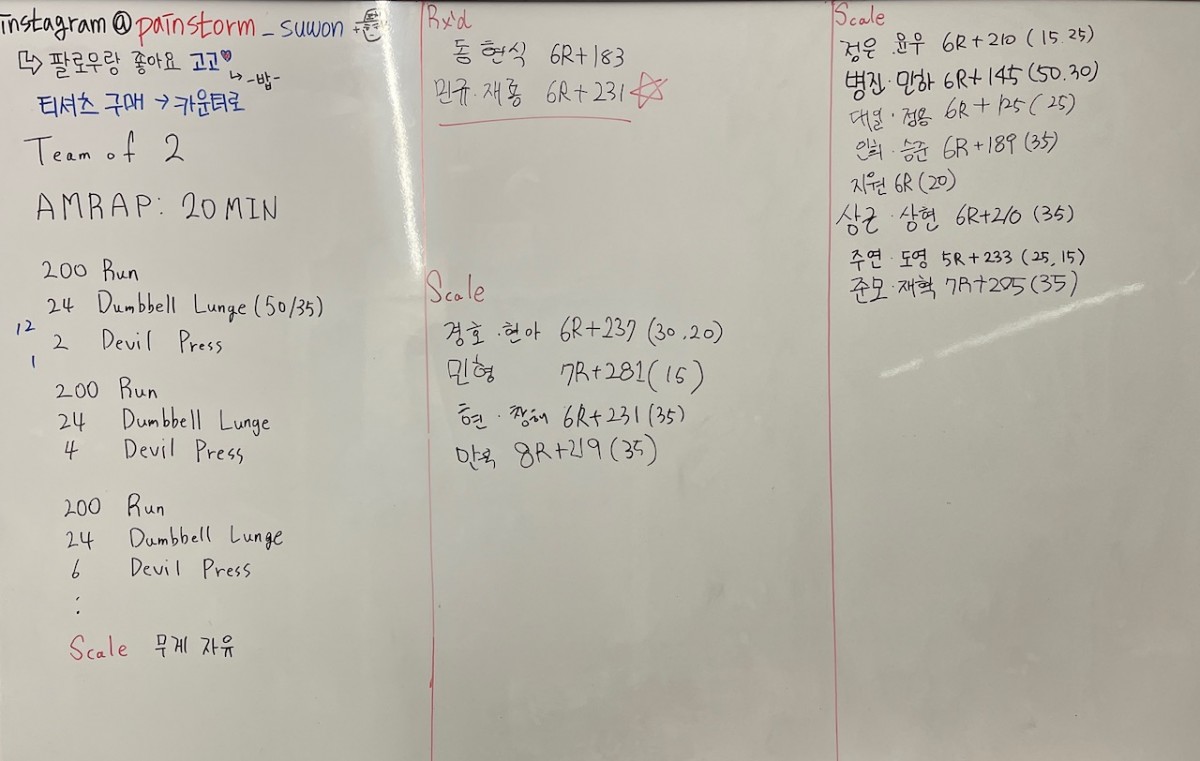 instagram@painstorm_suwon
팔로우랑 좋아요 고고
-밥-
티셔츠 구매 → 카운터로
Team of 2
AMRAP: 20MIN
200 Run
24 Dumbbell Lunge (50/35)
12
2 Devil Press
1
200 Run
24 Dumbbell Lunge
4 Devil Press
200 Run
24 Dumbbell Lunge
6 Devil Press
:
Scale 무게 자유
Rx'd
동 현식 6R+183
민규·재롱 6R+231
Scale
경호·현아 6R+237 (30.20)
민형 7R+281(15)
현·창해 6R+231(35)
만복 8R+219(35)
Scale
정운 윤우 6R+210 (15.25)
병진·민하 6R+145(50.30)
대열·정용 6R+125 (25)
인희·승준 6R+189(35)
지원 6R(20)
상근·상현 6R+210 (35)
주연·도영 5R+233 (25,15)
준모·재혁 7R+205(35)